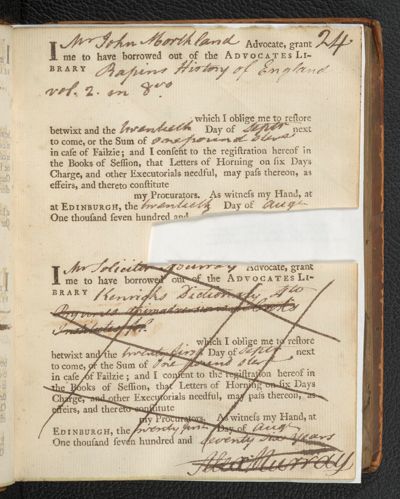 24
I Mr John Morthland Advocate, grant
me to have borrowed out of the ADVOCATES LI-
BRARY Rapins History of England
vol. 2. in 8vo
which I oblige me to reſtore
betwixt and the twentieth Day of Septr next
to come, or the Sum of one pound sters
in caſe of Failzie; and I conſent to the regiſtration hereof in
the Books of Seſſion, that Letters of Horning on ſix Days
Charge, and other Executorials needful, may paſs thereon, as
effeirs, and thereto conſtitute
my Procurators. As witneſs my Hand, at
at EDINBURGH, the twentieth Day of Augt
One thouſand ſeven hundred and
I Mr Solicitor Murray Advocate, grant
me to have borrowed out of the ADVOCATES LI-
BRARY Kenricks Dictionary 4to
which I oblige me to reſtore
betwixt and the twenty first Day of Septr next
to come, or the Sum of one pound sters
in caſe of Failzie; and I conſent to the regiſtration hereof in
the Books of Seſſion, that Letters of Horning on ſix Days
Charge, and other Executorials needful, may paſs thereon, as
effeirs, and thereto conſtitute
my Procurators. As witneſs my Hand, at
EDINBURGH, the twenty first Day of Augt
One thouſand ſeven hundred and seventy six years
Alex Murray